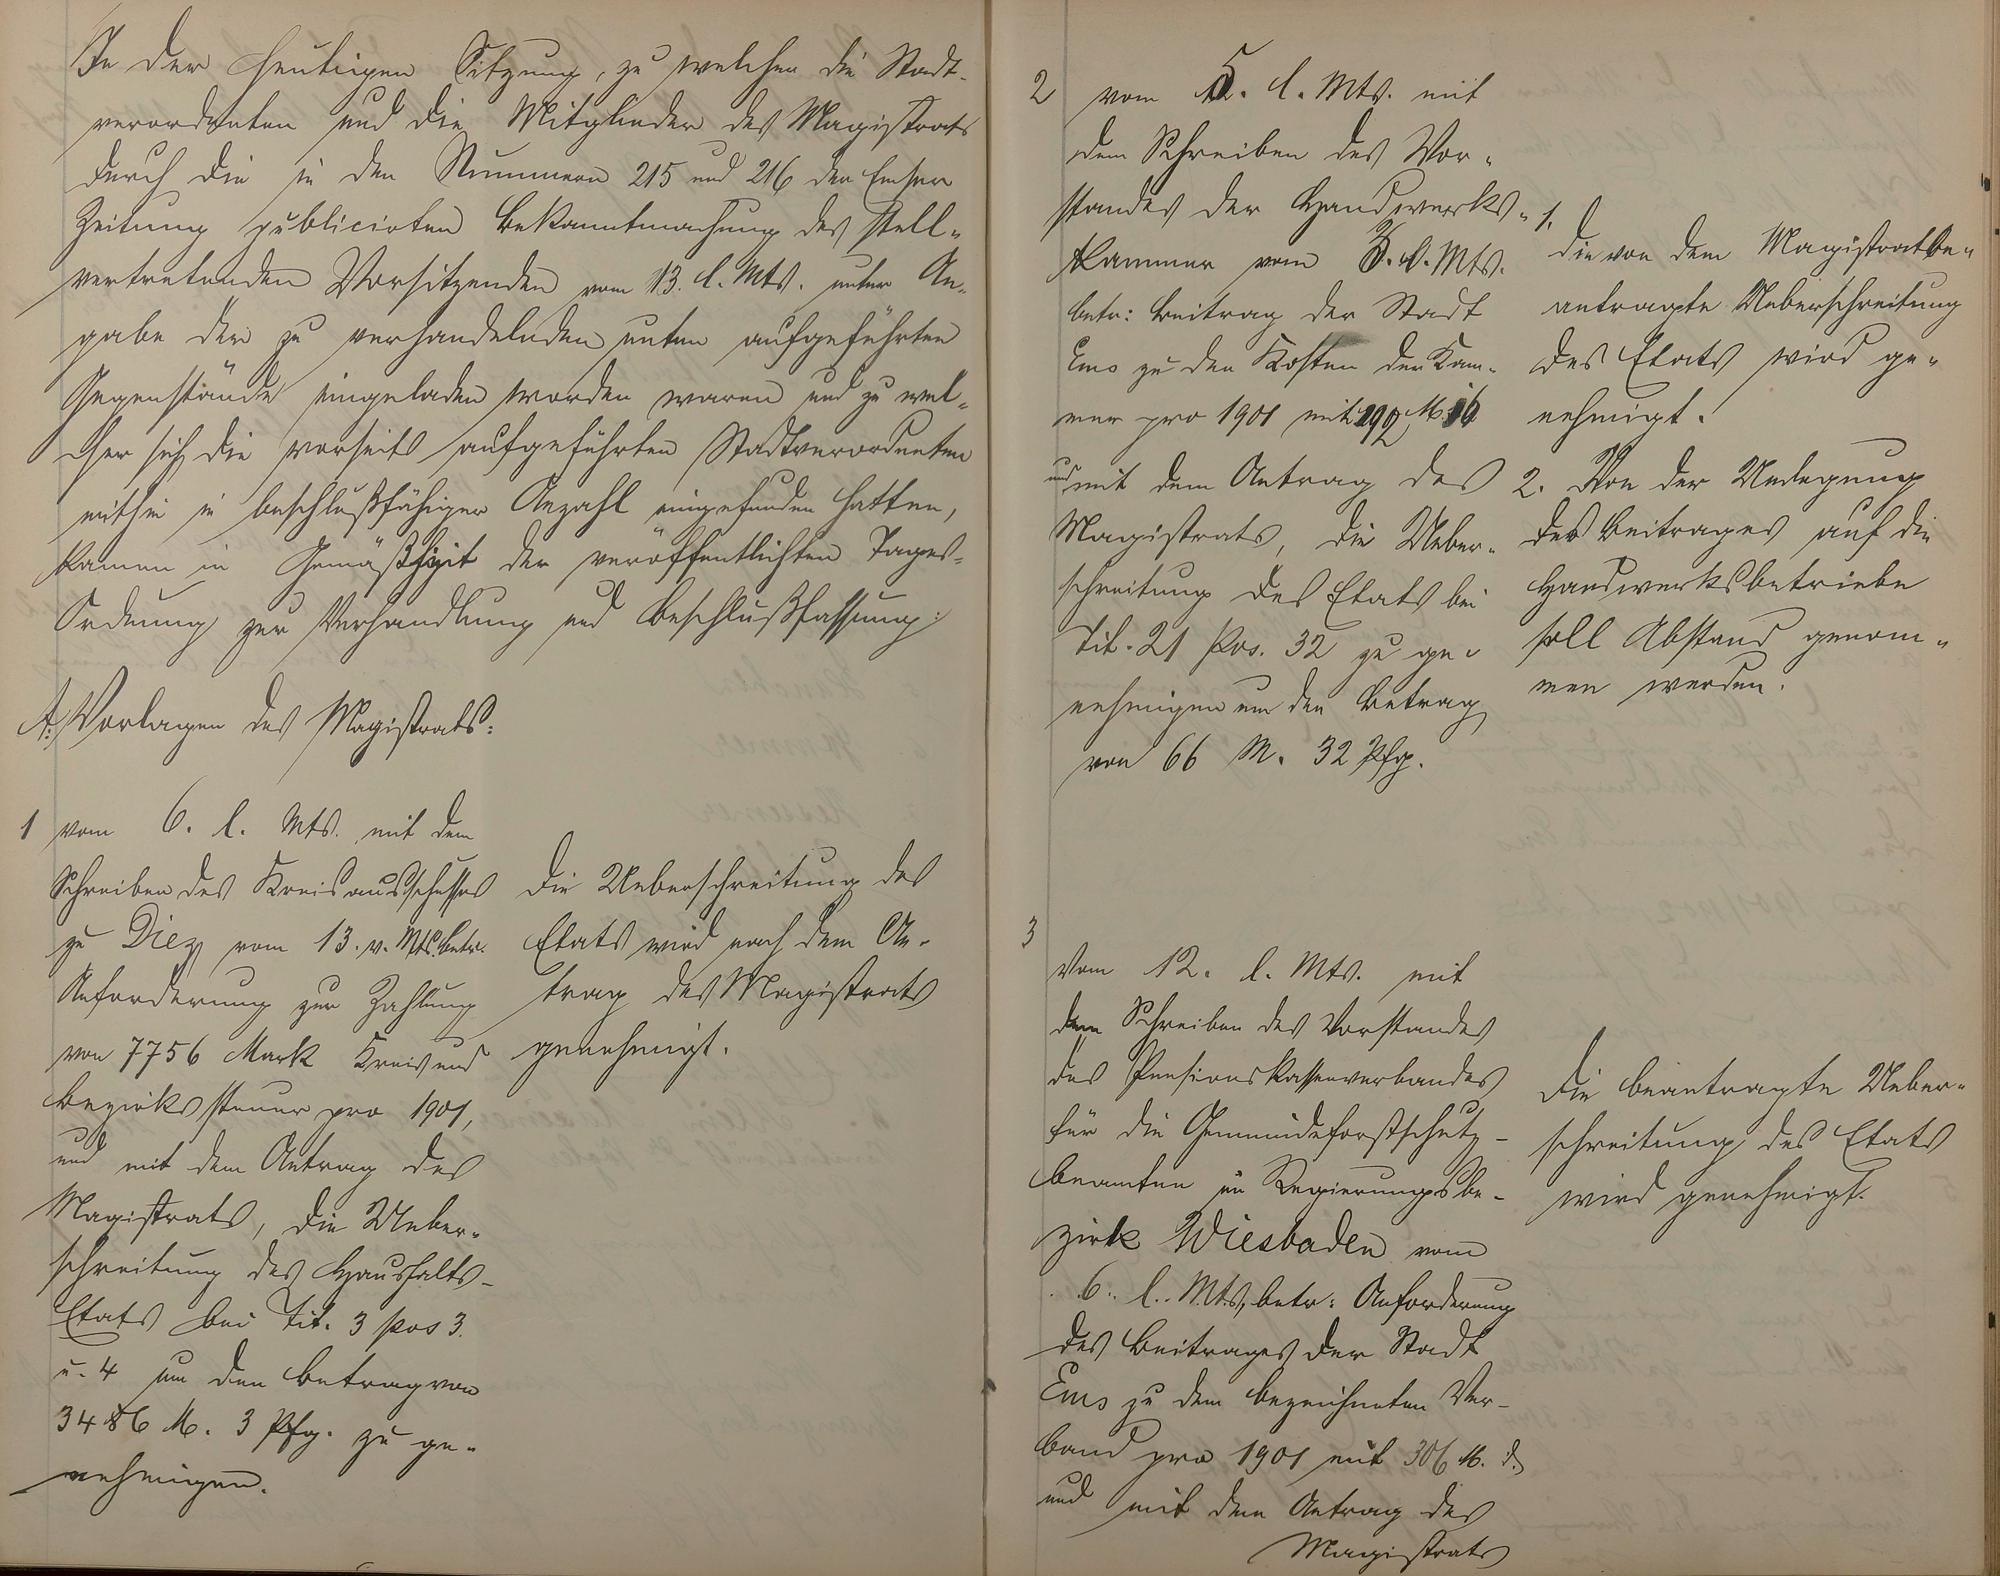 In der heutigen Sitzung, zu welcher die Stadt-
verordneten und die Mitglieder des Magistrats
durch die in den Nummern 215 und 216 der Emser
Zeitung publicirten Bekanntmachung des stell-
vertretenden Vorsitzenden vom 13. l. Mts. unter An-
gabe der zu verhandelnden unten aufgeführten
Gegenstände eingeladen worden waren und zu wel-
cher sich die vorseits aufgeführten Stadtverordneten
mithin in beschlußfähiger Anzahl eingefunden hatten,
kamen in Gemäßheit der veröffentlichten Tages-
Ordnung zur Verhandlung und Beschlußfassung:
A. Vorlagen des Magistrats:
1 vom 6. l. Mts. mit dem
Schreiben des Kreisausschusses
zu Diez vom 13. v. Mts. betr.
Anforderung zur Zahlung
von 7756 Mark Kreis und
Bezirkssteuer pro 1901,
und mit dem Antrag des
Magistrats, die Ueber-
schreitung des Haushalts-
Etats bei Tit. 3 pos 3.
u. 4 um den Betrag von
3486 M. 3 Pfg. zu ge-
nehmigen.
Die Ueberschreitung des
Etats wird nach dem An-
trag des Magistrats
genehmigt.
2 vom 5. l. Mts. mit
dem Schreiben des Vor-
standes der Handwerks-
kammer vom 3. l. Mts.
betr: Beitrag der Stadt
Ems zu den Kosten der Kam-
mer pro 1901 mit 192 M 16
und mit dem Antrag des
Magistrats, die Ueber-
schreitung des Etats bei
Tit. 21 Pos. 32 zu ge-
nehmigen um den Betrag
von 66 M. 32 Pfg.
1. die von dem Magistrat be-
antragte Ueberschreitung
des Etats wird ge-
nehmigt.
2. Von der Umlegung
des Beitrages auf die
Handwerksbetriebe
soll Abstand genom-
men werden.
3
Vom 12. l. Mts. mit
dem Schreiben des Vorstandes
des Pensionskassenverbandes
für die Gemeindeforstschutz-
beamten im Regierungsbe-
zirk Wiesbaden vom
6. l. Mts, betr: Anforderung
des Beitrages der Stadt
Ems zu dem bezeichneten Ver-
band pro 1901 mit 306 M.
und mit dem Antrag des
Magistrats
Die beantragte Ueber-
schreitung des Etats
wird genehmigt.